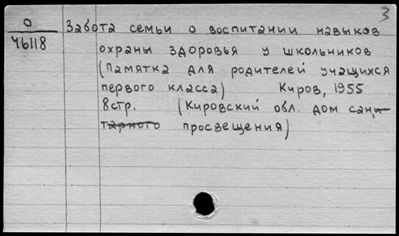 3
О Забота семьи о воспитании навыков
46118 охраны здоровья у школьников
(Памятка для родителей учащихся
первого класса) Киров, 1955
8стр. (Кировский обл. дом сани-
тарного просвещения)